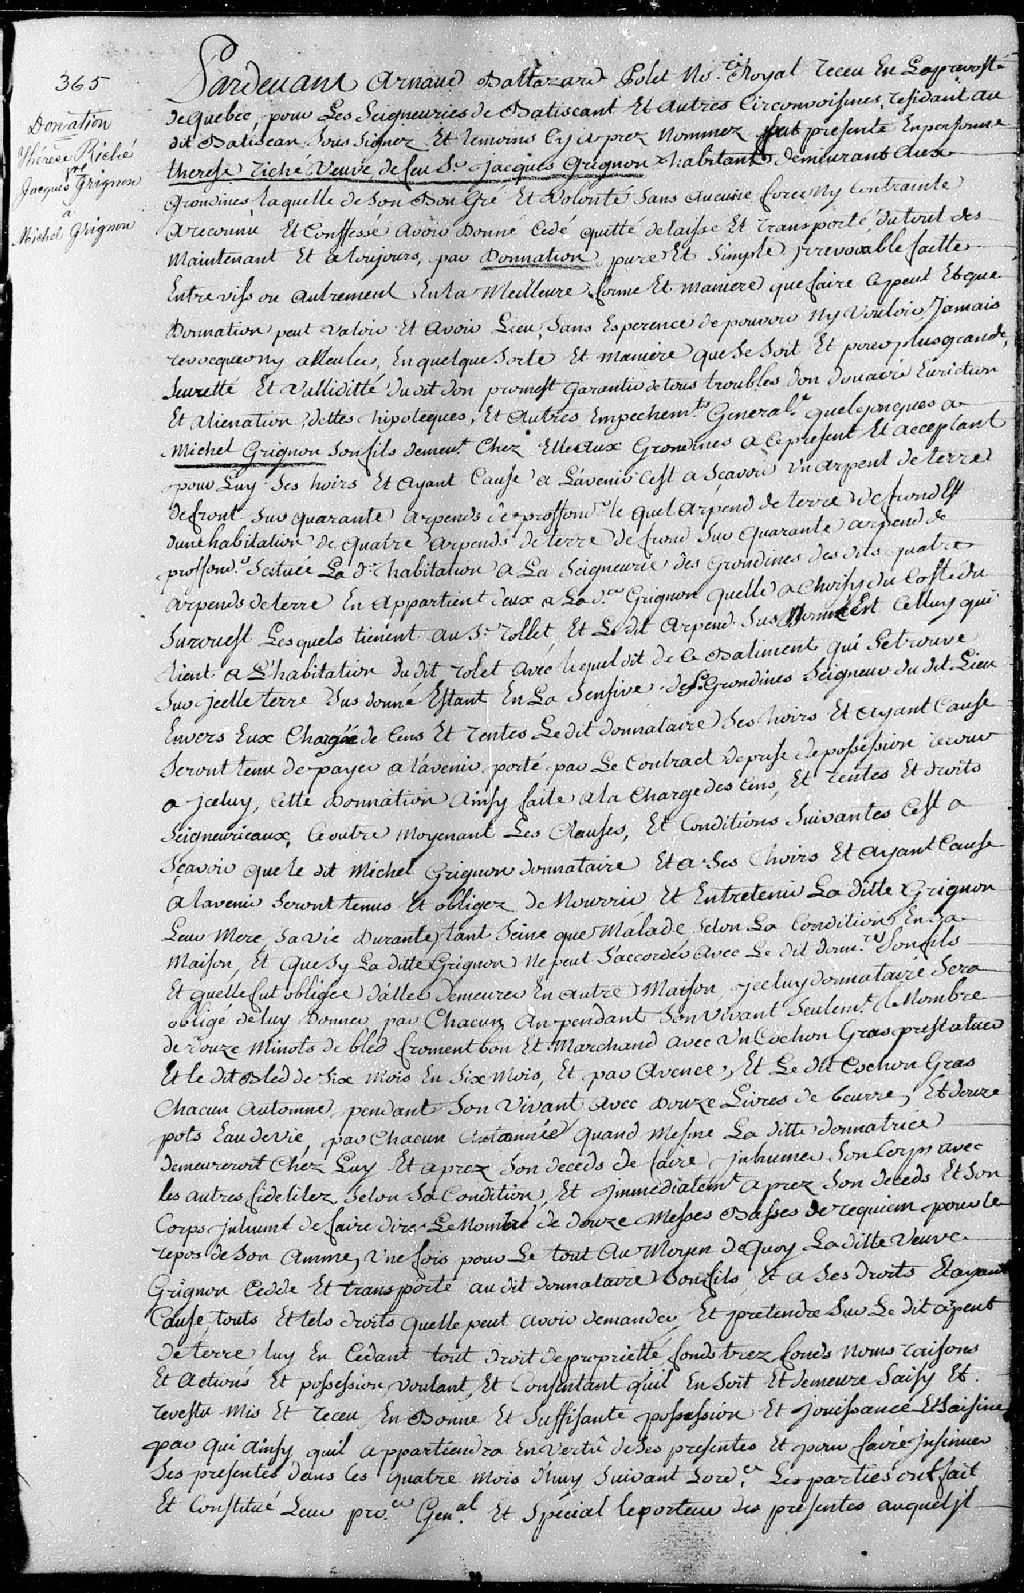 365
Donation
Thérèse Riché
Vve
Jacques Grignon
à
Michel Grignon
Pardevant Arnaud Baltazard Polet No.re Royal receu En La prevosté
de Quebec, pour Les Seigneuries de Batiscant Et autres Circonvoisines, residant au
dit Batiscan, Sous Signez Et temoins Cy aprez Nommez fut presente En personne
therese riché Veuve de feu Sr. Jacques Grignon habitante demeurant aux
Grondines laquelle de Son Bon Gré Et Volonté Sans aucune force Ny Contrainte
a reconnu Et Confessé avoir Donné Cedé quitté delaissé Et transporté du tout des
Maintenant Et a toujours, par Donnation pure Et Simple jrrevocable faitte
Entre vifs ou autrement En La Meilleure forme Et maniere que faire Ce peut Et que
Donnation peut valoir Et avoir Lieu, Sans Esperence de pouvoir Ny Vouloir Jamais
revocquer ny alleuler, En quelque Sorte Et maniere que Se Soit Et pour plus grande
Seuretté Et Valliditté du dit don promest Garantir de tous troubles don douaire Eviction
Et alienation dettes hipoteques, Et Autres Empechem.ts General.t quelconques a
Michel Grignon Son fils demeu.t Chez Elle aux Grondines a Ce present Et acceptant
pour Luy Ses hoirs Et ayant Cause a L'avenir C'est a Sçavoir Un arpent de terre
de front Sur quarante arpends de proffond.r le quel arpend de terre de front Est
d'une habitation de quatre arpends de terre de front Sur Quarante arpend de
proffond.r Scituée La d.e habitation a La Seigneurie des Grondines des dits quatre
arpends de terre En appartient deux a La d.te Grignon quelle a Choisy du Costé du
Surouest Lesquels tienent au Sr. rollet, Et Le dit arpend Sus Donné Est Celluy qui
tient a L'habitation du dit rolet avec lequel dit de Ce Batiment qui Se trouve
Sur jcelle terre Sus donné Estant En La Sensive des Grondines Seigneur du dit Lieu
Envers Eux Chargée de Cens Et rentes Le dit donnataire Ses hoirs Et ayant Cause
Seront tenu de payer a l'avenir, porté par Le Contract de prise de possession
a jceluy, Cette Donnation ainsy faite a la Charge des Cens, Et rentes Et droits
Seigneurieaux, Ce outre Moyenant Les Clauses, Et Conditions Suivantes C'est a
Sçavoir que le dit Michel Grignon donnataire Et a Ses hoirs Et ayant Cause
a l'avenir Seront tenus Et obligez de Nourrir Et Entretenir La ditte Grignon
Leur Mere, Sa vie Durante, tant Seine que Malade Selon La Condition En Sa
Maison, Et que Sy La ditte Grignon Ne peut S'accorder avec Le dit donn.re Son fils
Et quelle fut obligée D'aller demeurer En autre Maison, jceluy donnataire Sera
obligé de luy Donner par Chacun An pendant Son Vivant Seulem.t Le Nombre
de Douze Minots de bled froment bon Et Marchand avec Un Cochon Gras
Et le dit Bled de Six mois En Six mois, Et par avence, Et Le dit Cochon Gras
Chacun Automne, pendant Son Vivant Avec Douze Livres de beurre, Et douze
pots Eau de Vie, par Chacun Année quand Mesme La ditte donnatrice
demeureroit Chez Luy Et aprez Son deceds de faire jnhumer Son Corps avec
les autres fidelilez Selon Sa Condition, Et jmmediatem.t aprez Son deceds Et Son
Corps jnhumé de faire dire Le Nombre de douze Messes Basses de requiem pour le
repos de Son amme, Une fois pour Le tout Au Moyen de quoy La ditte Veuve
Grignon Cedde Et transporte au dit donnataire Son fils, Et a Ses droits Et ayant
Cause, touts Et tels droits quelle peut avoir demander, Et pretendre Sur Le dit arpent
de terre luy En Cedant tout droit de proprietté, fonds trez fonds Noms raisons
Et Actions Et possession voulant, Et Consentant qu'il En Soit Et demeure Saisy Et
revestu Mis Et receu En Bonne Et Suffisante possession Et jouissance Et Saisine
par qui ainsy quil appartiendra En Vertû de Ses presentes Et pour faire jnsinuer
Ses presentes dans les quatre mois d'huy Suivant Lord.ce Les parties ont fait
Et Constitué Leur pro.eur Gen.al Et Special le porteur des presentes auquel jl